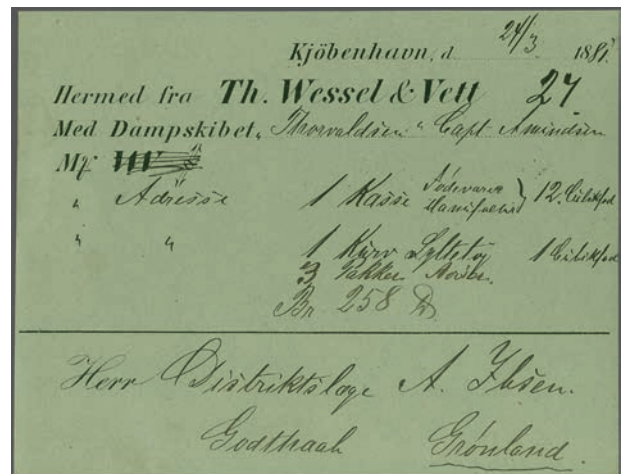 Kjöbenhavn, d. 24/3 1881.
Hermed fra Th. Wessel & Vett 27
Med Dampskibet „Thorvaldsen“ Capt Amindsen
Mk
„ Adresse 1 Kasse 12. Cubikfod
„ „ 1 Kurv Syltetøj 1 Cubikfod
3 Pakker
Br. 258
Herr Distriktslæge A. Ibsen.
Godthaab Grönland.